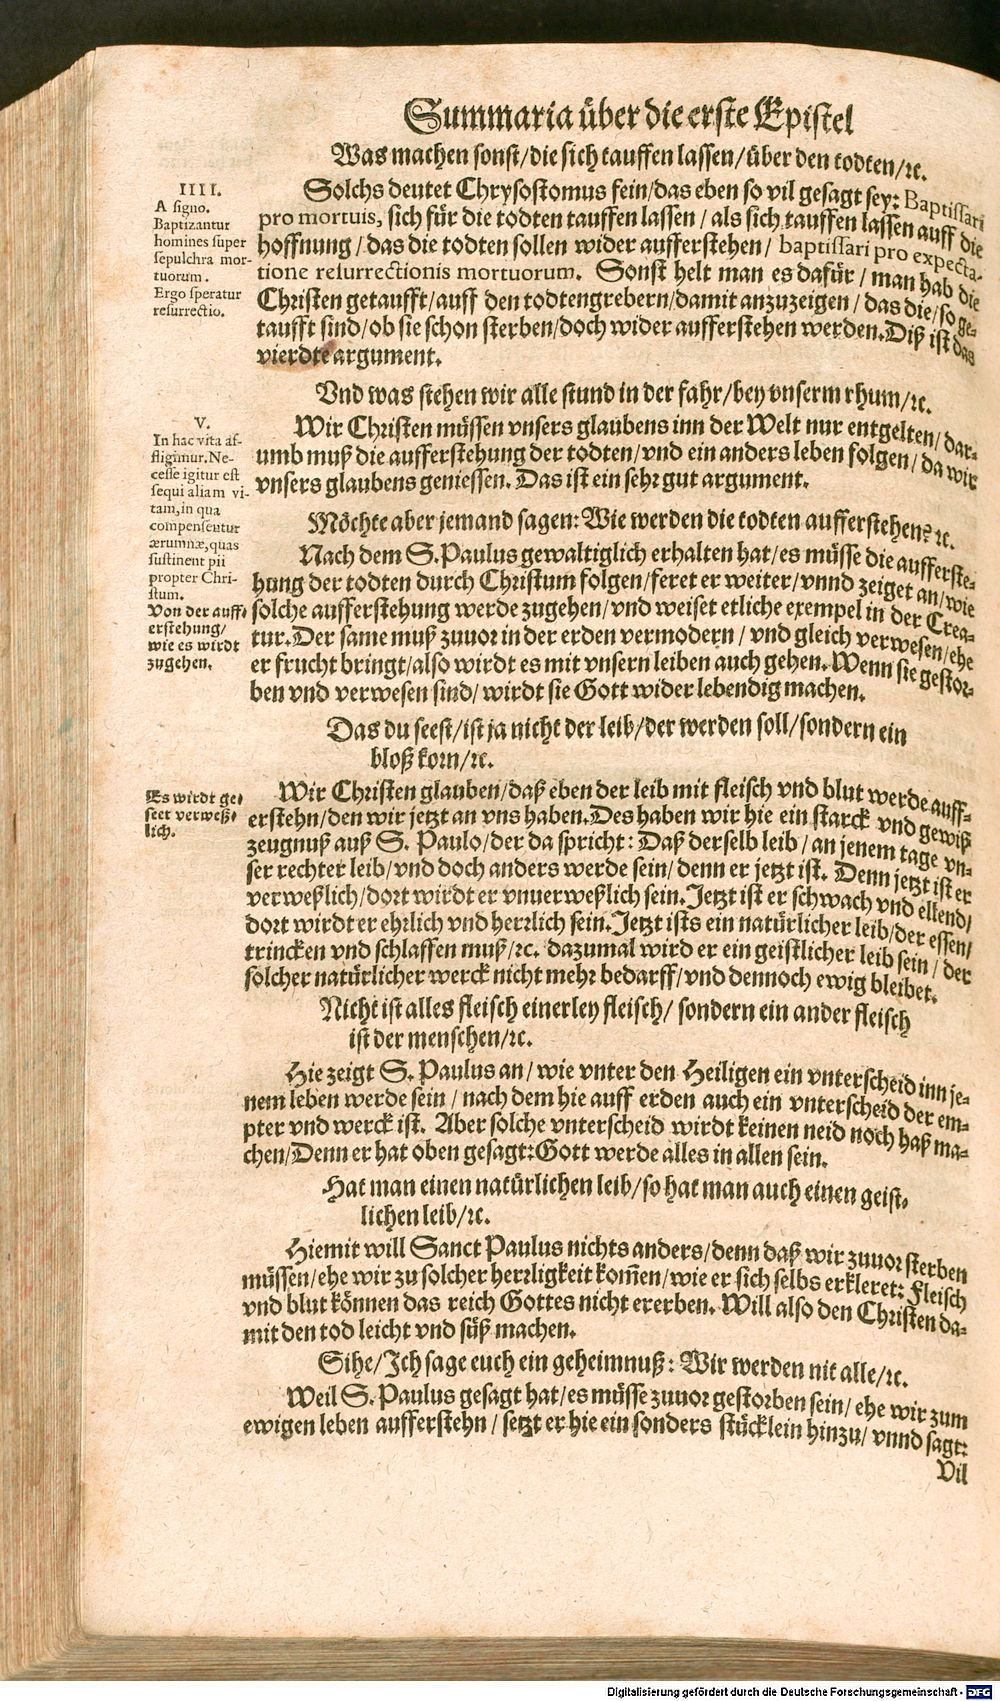 Summaria über die erste Epistel
Was machen sonst/die sich tauffen lassen/über den todten/ꝛc.
IIII.
A signo.
Baptizantur
homines super
sepulchra mor-
tuorum.
Ergo speratur
resurrectio.
Solchs deutet Chrysostomus fein/das eben so vil gesagt sey: Baptissari
pro mortuis, sich für die todten tauffen lassen / als sich tauffen lassen auff die
hoffnung/das die todten sollen wider aufferstehen/ baptissari pro expecta-
tione resurrectionis mortuorum. Sonst helt man es dafür / man hab die
Christen getaufft/auff den todtengrebern/damit anzuzeigen / das die/so ge-
taufft sind/ob sie schon sterben/doch wider aufferstehen werden. Diß ist das
vierdte argument.
Vnd was stehen wir alle stund in der fahr/bey vnserm rhum/ꝛc.
V.
In hac vita af-
fligimur. Ne-
cesse igitur est
sequi aliam vi-
tam, in qua
compensentur
ærumnæ, quas
sustinent pii
propter Chri-
stum.
Wir Christen müssen vnsers glaubens inn der Welt nur entgelten/ dar-
umb muß die aufferstehung der todten/vnd ein anders leben folgen/ da wir
vnsers glaubens geniessen. Das ist ein sehr gut argument.
Möchte aber jemand sagen: Wie werden die todten aufferstehen? ꝛc.
Von der auff-
erstehung/
wie es wirdt
zugehen.
Nach dem S. Paulus gewaltiglich erhalten hat/es müsse die aufferste-
hung der todten durch Christum folgen/feret er weiter/vnnd zeiget an/wie
solche aufferstehung werde zugehen/vnd weiset etliche exempel in der Crea-
tur. Der same muß zuuor in der erden vermodern / vnd gleich verwesen/ehe
er frucht bringt/also wirdt es mit vnsern leiben auch gehen. Wenn sie gestor-
ben vnd verwesen sind/ wirdt sie Gott wider lebendig machen.
Das du seest/ist ja nicht der leib/der werden soll/sondern ein
bloß korn/ꝛc.
Es wirdt ge-
seet verweß-
lich.
Wir Christen glauben/daß eben der leib mit fleisch vnd blut werde auff-
erstehn/den wir jetzt an vns haben. Des haben wir hie ein starck vnd gewiß
zeugnuß auß S. Paulo/der da spricht: Daß derselb leib/an jenem tage vn-
ser rechter leib/vnd doch anders werde sein/denn er jetzt ist. Denn jetzt ist er
verweßlich/dort wirdt er vnuerweßlich sein. Jetzt ist er schwach vnd ellend/
dort wirdt er ehrlich vnd herrlich sein. Jetzt ists ein natürlicher leib/der essen/
trincken vnd schlaffen muß/ꝛc. dazumal wird er ein geistlicher leib sein / der
solcher natürlicher werck nicht mehr bedarff/vnd dennoch ewig bleibet.
Nicht ist alles fleisch einerley fleisch/ sondern ein ander fleisch
ist der menschen/ꝛc.
Hie zeigt S. Paulus an/ wie vnter den Heiligen ein vnterscheid inn je-
nem leben werde sein / nach dem hie auff erden auch ein vnterscheid der em-
pter vnd werck ist. Aber solche vnterscheid wirdt keinen neid noch haß ma-
chen/Denn er hat oben gesagt: Gott werde alles in allen sein.
Hat man einen natürlichen leib/so hat man auch einen geist-
lichen leib/ꝛc.
Hiemit will Sanct Paulus nichts anders/denn daß wir zuuor sterben
müssen/ehe wir zu solcher herrligkeit kom̃en/wie er sich selbs erkleret: Fleisch
vnd blut können das reich Gottes nicht ererben. Will also den Christen da-
mit den tod leicht vnd süß machen.
Sihe/Ich sage euch ein geheimnuß: Wir werden nit alle/ꝛc.
Weil S. Paulus gesagt hat/es müsse zuuor gestorben sein/ ehe wir zum
ewigen leben aufferstehn / setzt er hie ein sonders stücklein hinzu/ vnnd sagt:
Vil
Digitalisierung gefördert durch die Deutsche Forschungsgemeinschaft - DFG